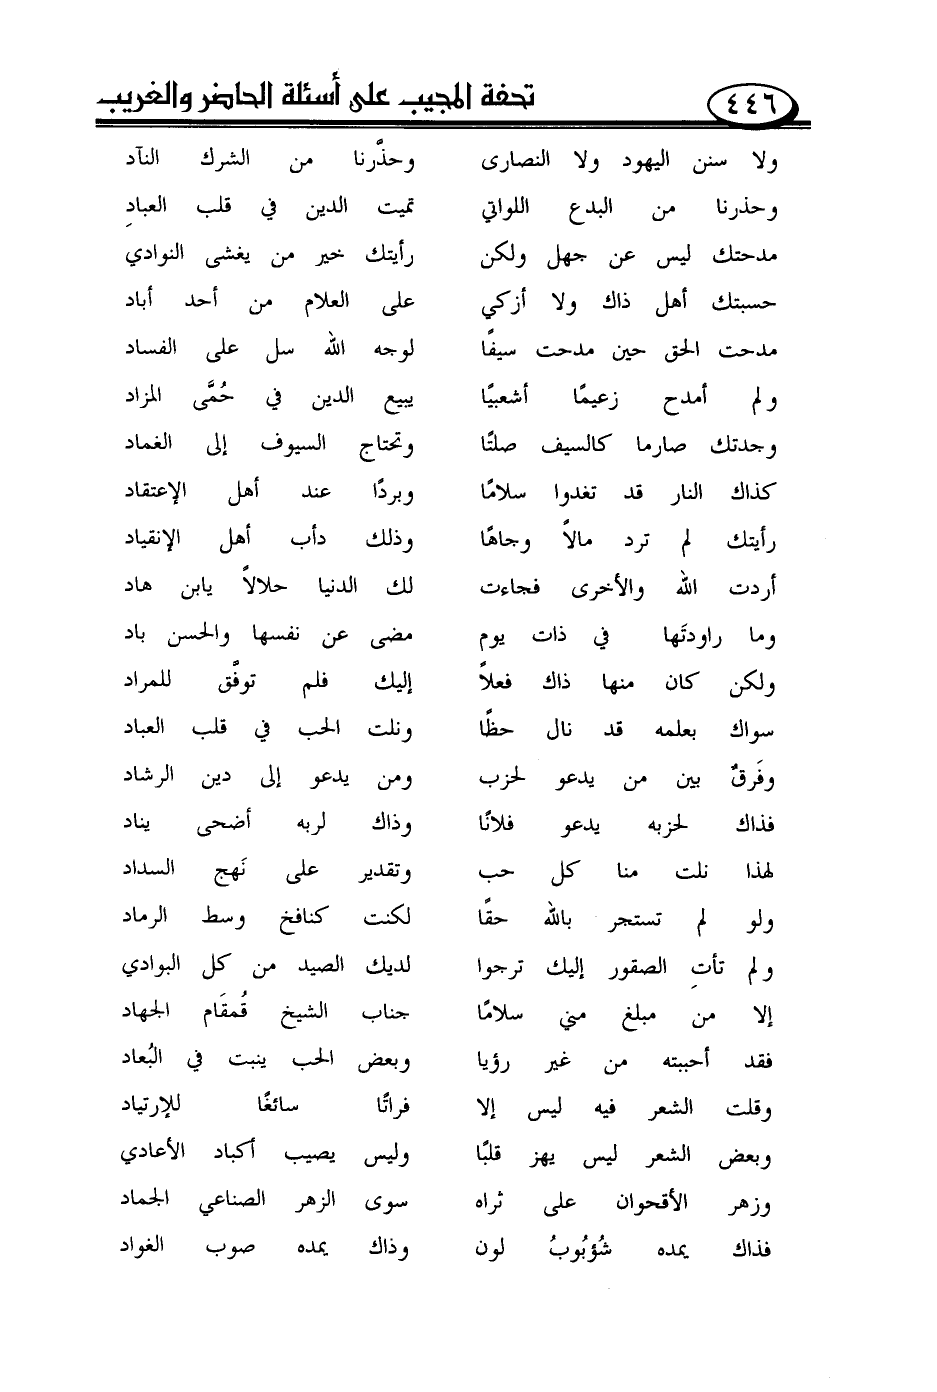 ٤٤٦ تحفة المجيب على أسئلة الحاضر والغريب
ولا سنن اليهود ولا النصارى وحذَّرنا من الشرك النآد
وحذرنا من البدع اللواتي تميت الدين في قلب العبادِ
مدحتك ليس عن جهل ولكن رأيتك خير من يغشى النوادي
حسبتك أهل ذاك ولا أزكي على العلام من أحد أباد
مدحت الحق حين مدحت سيفًا لوجه الله سل على الفساد
ولم أمدح زعيمًا أشعبيًا يبيع الدين في حُمَّى المزاد
وجدتك صارما كالسيف صلتًا وتحتاج السيوف إلى الغماد
كذاك النار قد تغدوا سلامًا وبردًا عند أهل الإعتقاد
رأيتك لم ترد مالاً وجاهًا وذلك دأب أهل الإنقياد
أردت الله والأخرى فجاءت لك الدنيا حلالاً يابن هاد
وما راودتَها في ذات يوم مضى عن نفسها والحسن باد
ولكن كان منها ذاك فعلاً إليك فلم توفَّق للمراد
سواك بعلمه قد نال حظًا ونلت الحب في قلب العباد
وفَرقٌ بين من يدعو لحزب ومن يدعو إلى دين الرشاد
فذاك لحزبه يدعو فلانًا وذاك لربه أضحى يناد
لهذا نلت منا كل حب وتقدير على نَهج السداد
ولو لم تستجر بالله حقًا لكنت كنافخ وسط الرماد
ولم تأتِ الصقور إليك ترجوا لديك الصيد من كل البوادي
إلا من مبلغ مني سلامًا جناب الشيخ قُمقَام الجهاد
فقد أحببته من غير رؤيا وبعض الحب ينبت في البُعاد
وقلت الشعر فيه ليس إلا فراتًا سائغًا للإرتياد
وبعض الشعر ليس يهز قلبًا وليس يصيب أكباد الأعادي
وزهر الأقحوان على ثراه سوى الزهر الصناعي الجماد
فذاك يمده شُؤبُوبُ لون وذاك يمده صوب الغواد